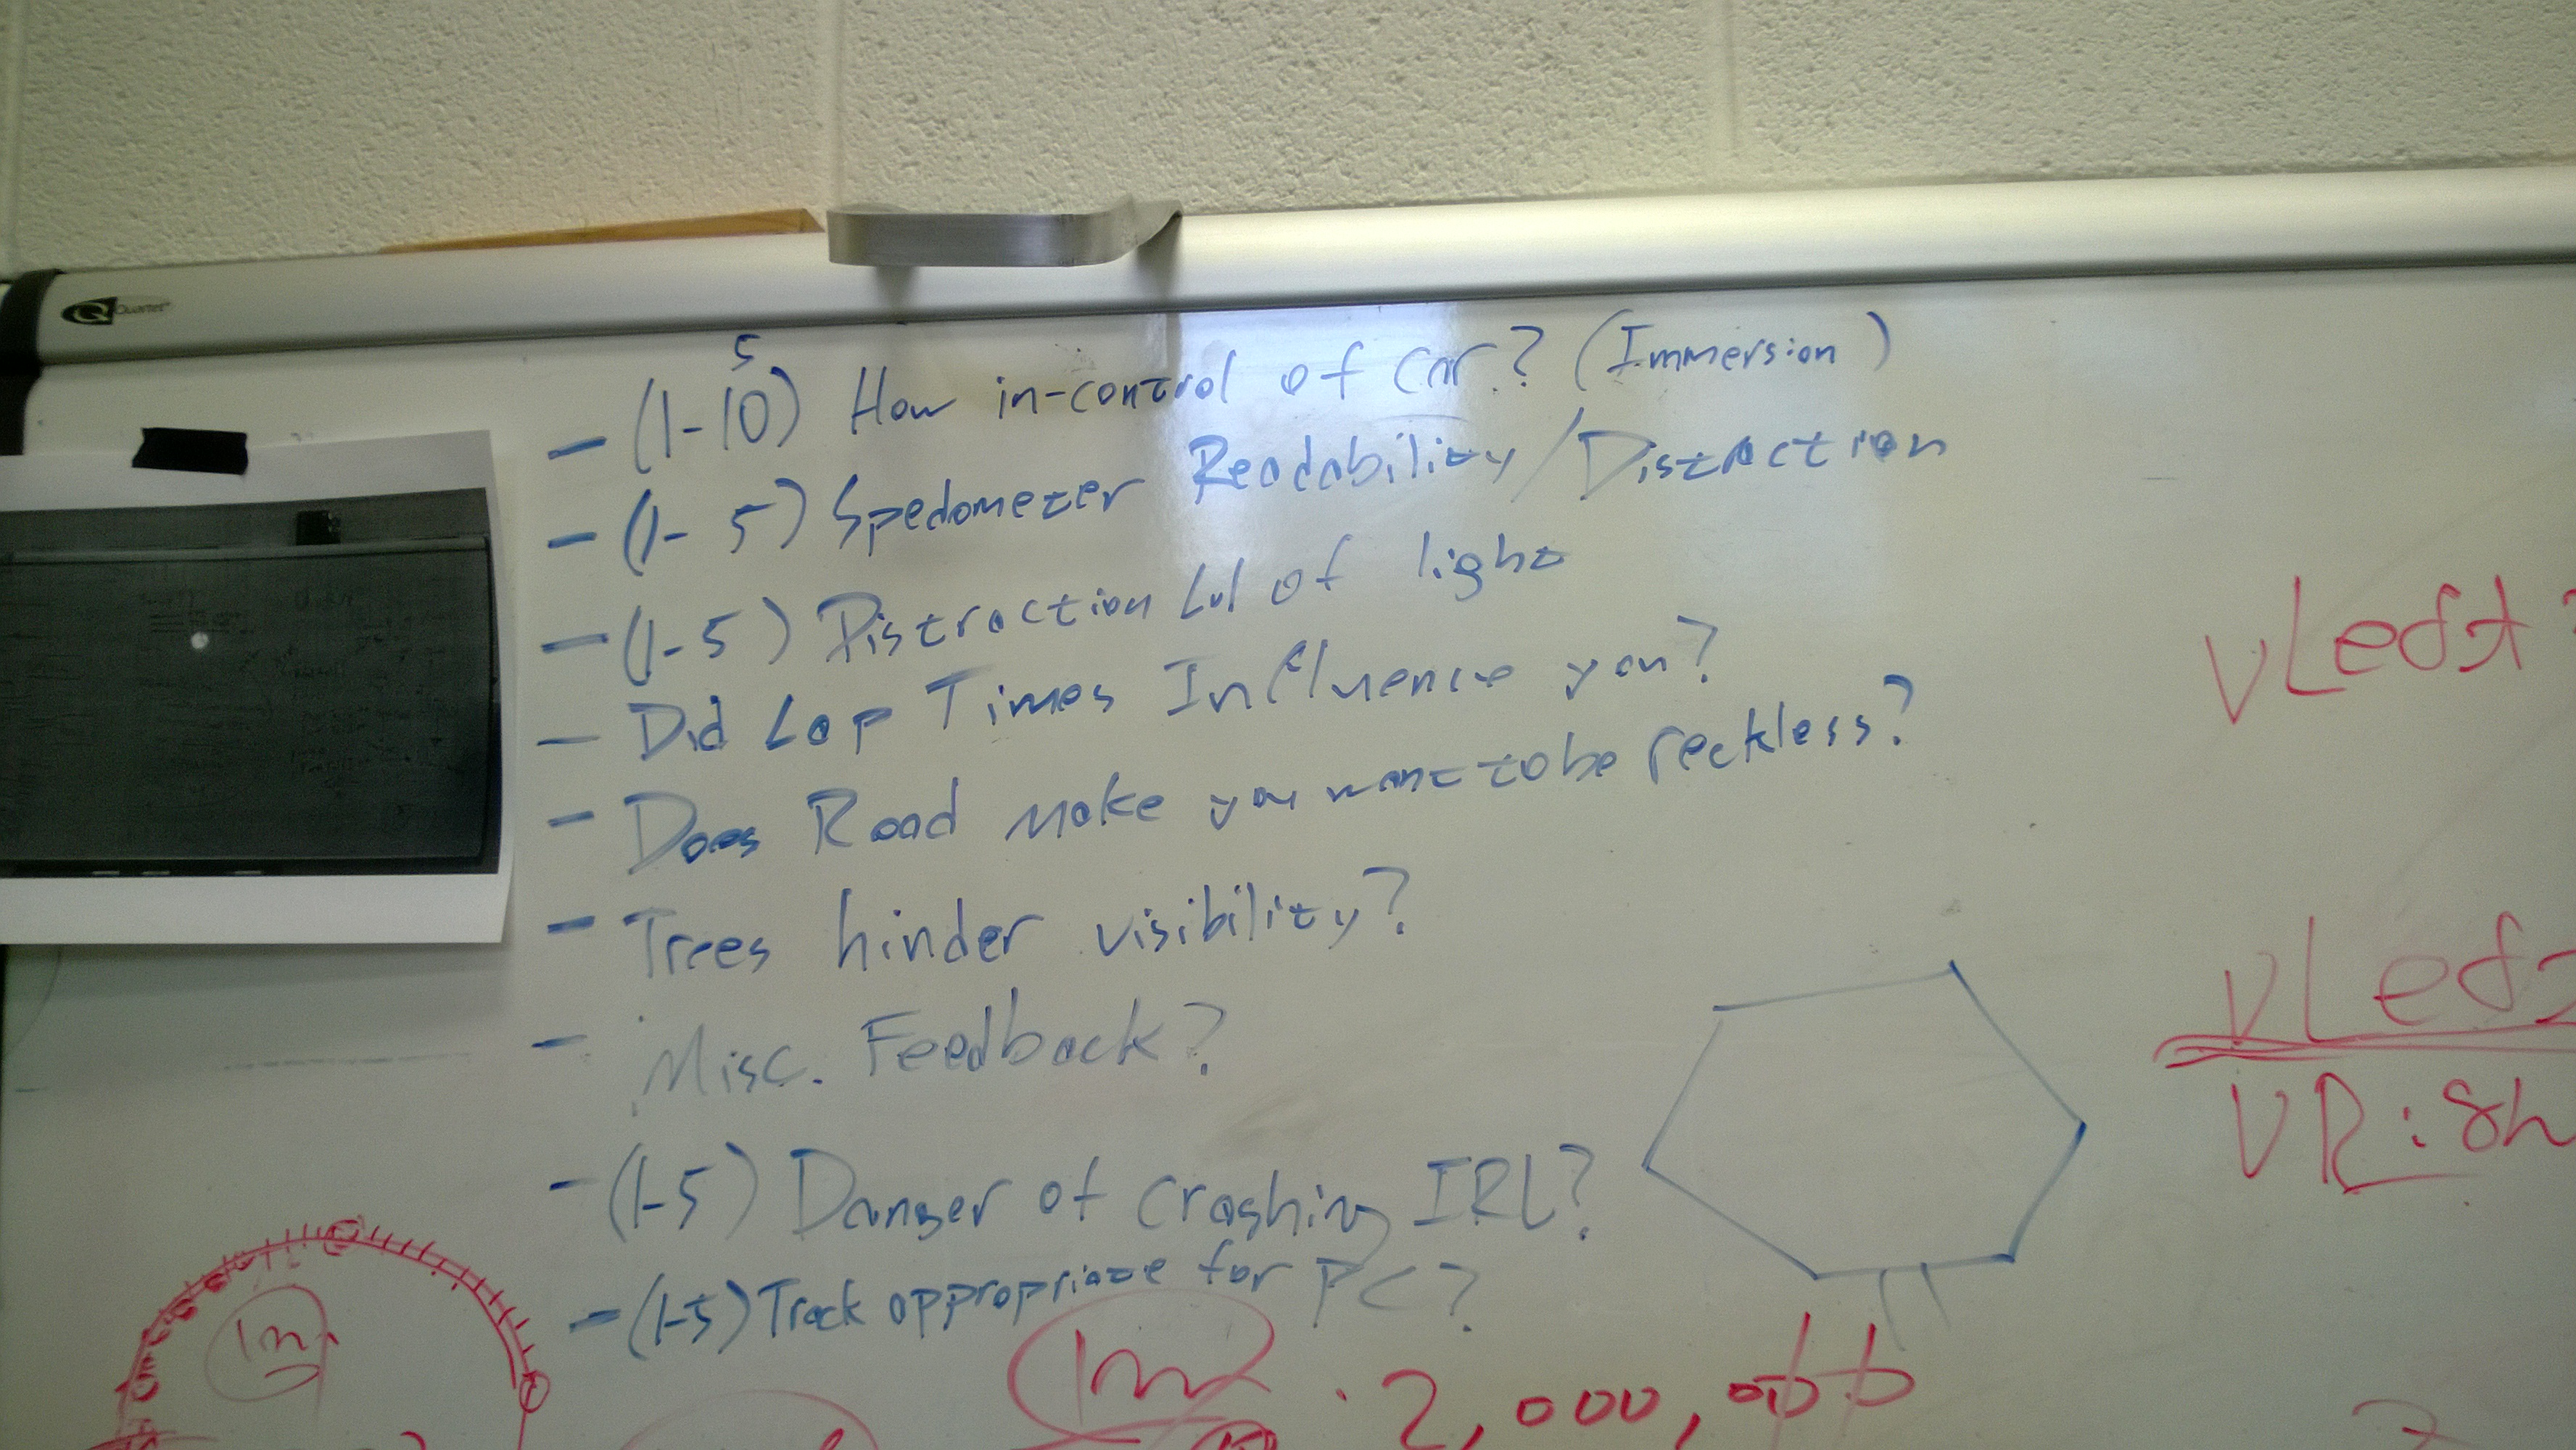 Quartet
5
- (1-10) How in-control of car? (Immersion)
- (1-5) Spedometer Readability/Distraction
- (1-5) Distraction Lvl of light
- Did Lap Times Influence you?
- Does Road make you want to be reckless?
- Trees hinder visibility?
- Misc. Feedback?
- (1-5) Danger of crashing IRL?
- (1-5) Track appropriate for PC?
VR:
1m
2,000,000